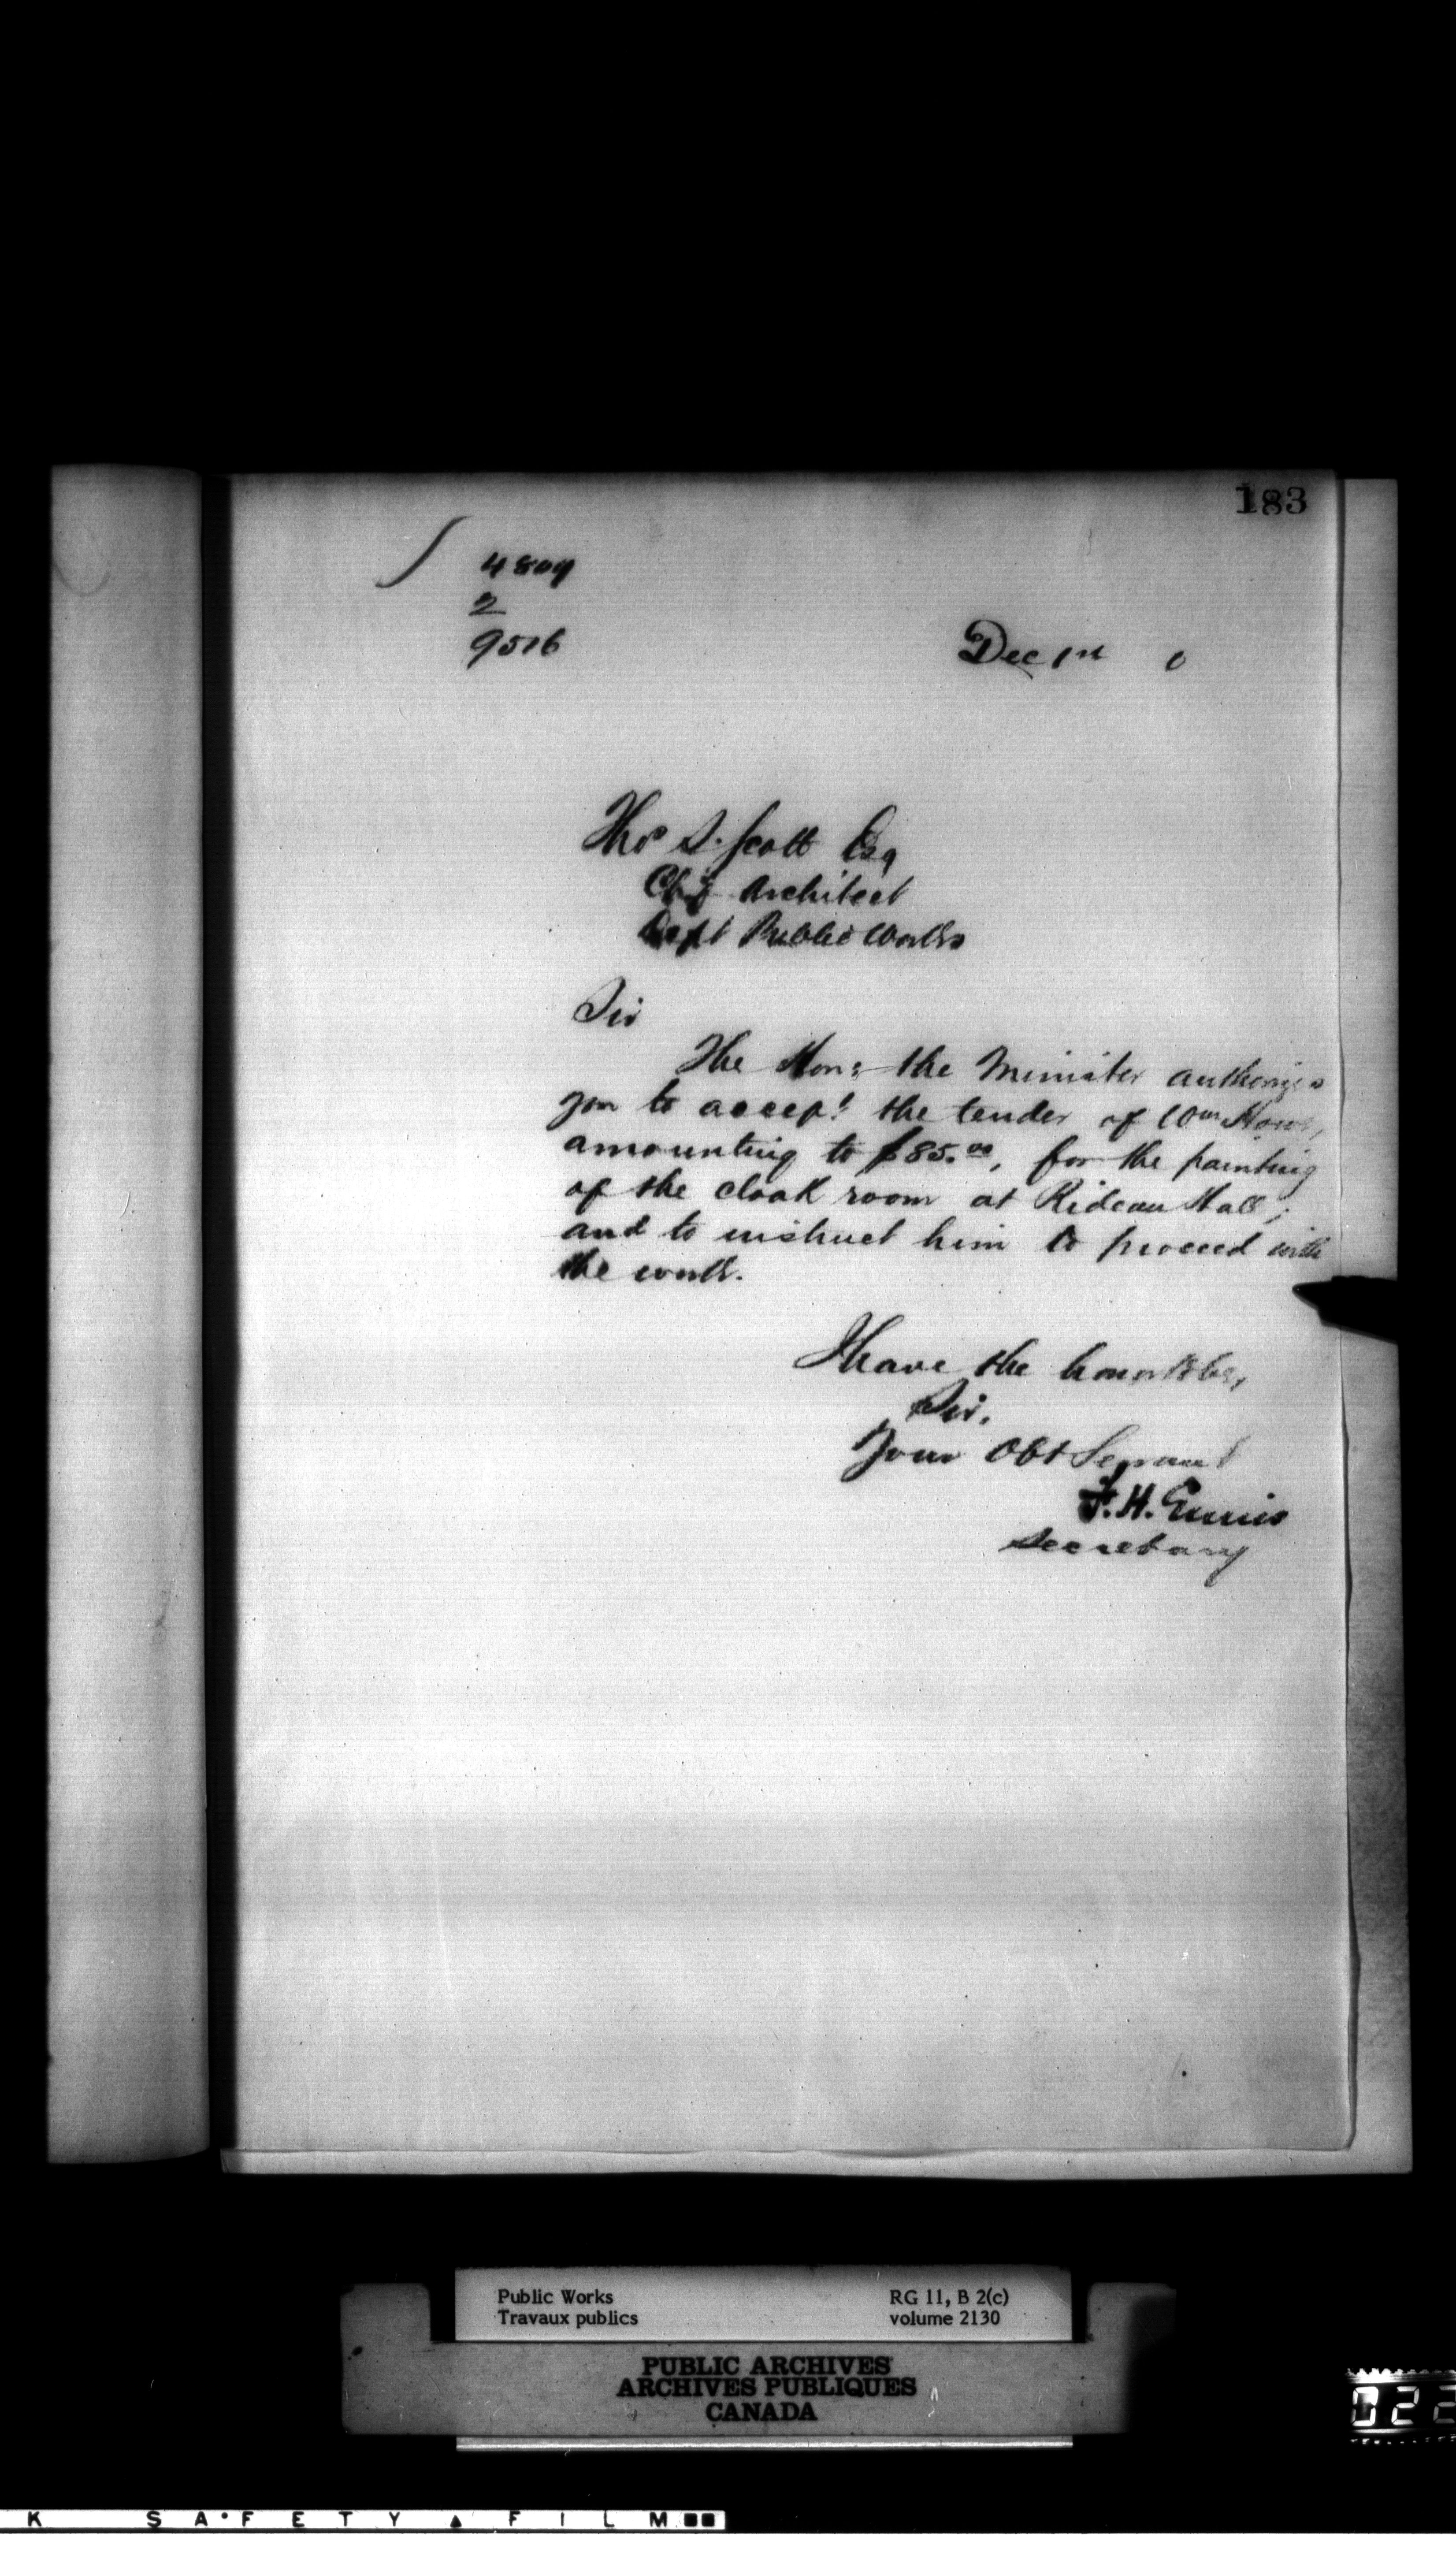 183
4809
2
9516
Dec 1st 0
Thos S. Scott Esq
Chf Architect
Dept Public Works
Sir
The Hon: the Minister authorizes
you to accept the tender of Wm Howe,
amounting to $85.00, for the painting
of the cloak room at Rideau Hall,
and to instruct him to proceed with
the work.
I have the honor to be,
Sir,
Your Obt Servant
F. H. Ennis
Secretary
Public Works
Travaux publics
RG 11, B 2(c)
volume 2130
PUBLIC ARCHIVES
ARCHIVES PUBLIQUES
CANADA
022
K SAFETY FILM